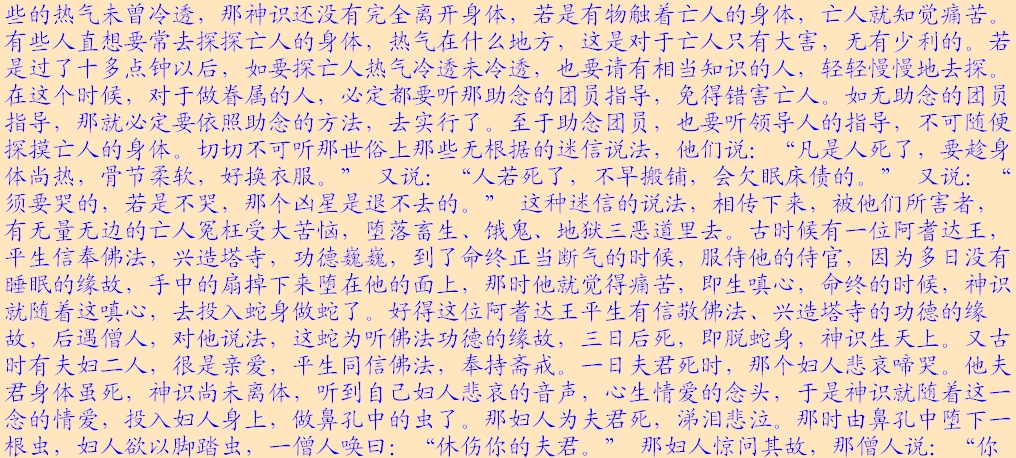 些的热气未曾冷透，那神识还没有完全离开身体，若是有物触着亡人的身体，亡人就知觉痛苦。
有些人直想要常去探探亡人的身体，热气在什么地方，这是对于亡人只有大害，无有少利的。若
是过了十多点钟以后，如要探亡人热气冷透未冷透，也要请有相当知识的人，轻轻慢慢地去探。
在这个时候，对于做眷属的人，必定都要听那助念的团员指导，免得错害亡人。如无助念的团员
指导，那就必定要依照助念的方法，去实行了。至于助念团员，也要听领导人的指导，不可随便
探摸亡人的身体。切切不可听那世俗上那些无根据的迷信说法，他们说：“凡是人死了，要趁身
体尚热，骨节柔软，好换衣服。” 又说：“人若死了，不早搬铺，会欠眠床债的。” 又说：“
须要哭的，若是不哭，那个凶星是退不去的。” 这种迷信的说法，相传下来，被他们所害者，
有无量无边的亡人冤枉受大苦恼，堕落畜生、饿鬼、地狱三恶道里去。古时候有一位阿耆达王，
平生信奉佛法，兴造塔寺，功德巍巍，到了命终正当断气的时候，服侍他的侍官，因为多日没有
睡眠的缘故，手中的扇掉下来堕在他的面上，那时他就觉得痛苦，即生嗔心，命终的时候，神识
就随着这嗔心，去投入蛇身做蛇了。好得这位阿耆达王平生有信敬佛法、兴造塔寺的功德的缘
故，后遇僧人，对他说法，这蛇为听佛法功德的缘故，三日后死，即脱蛇身，神识生天上。又古
时有夫妇二人，很是亲爱，平生同信佛法，奉持斋戒。一日夫君死时，那个妇人悲哀啼哭。他夫
君身体虽死，神识尚未离体，听到自己妇人悲哀的音声，心生情爱的念头，于是神识就随着这一
念的情爱，投入妇人身上，做鼻孔中的虫了。那妇人为夫君死，涕泪悲泣。那时由鼻孔中堕下一
根虫，妇人欲以脚踏虫，一僧人唤曰：“休伤你的夫君。” 那妇人惊问其故，那僧人说：“你